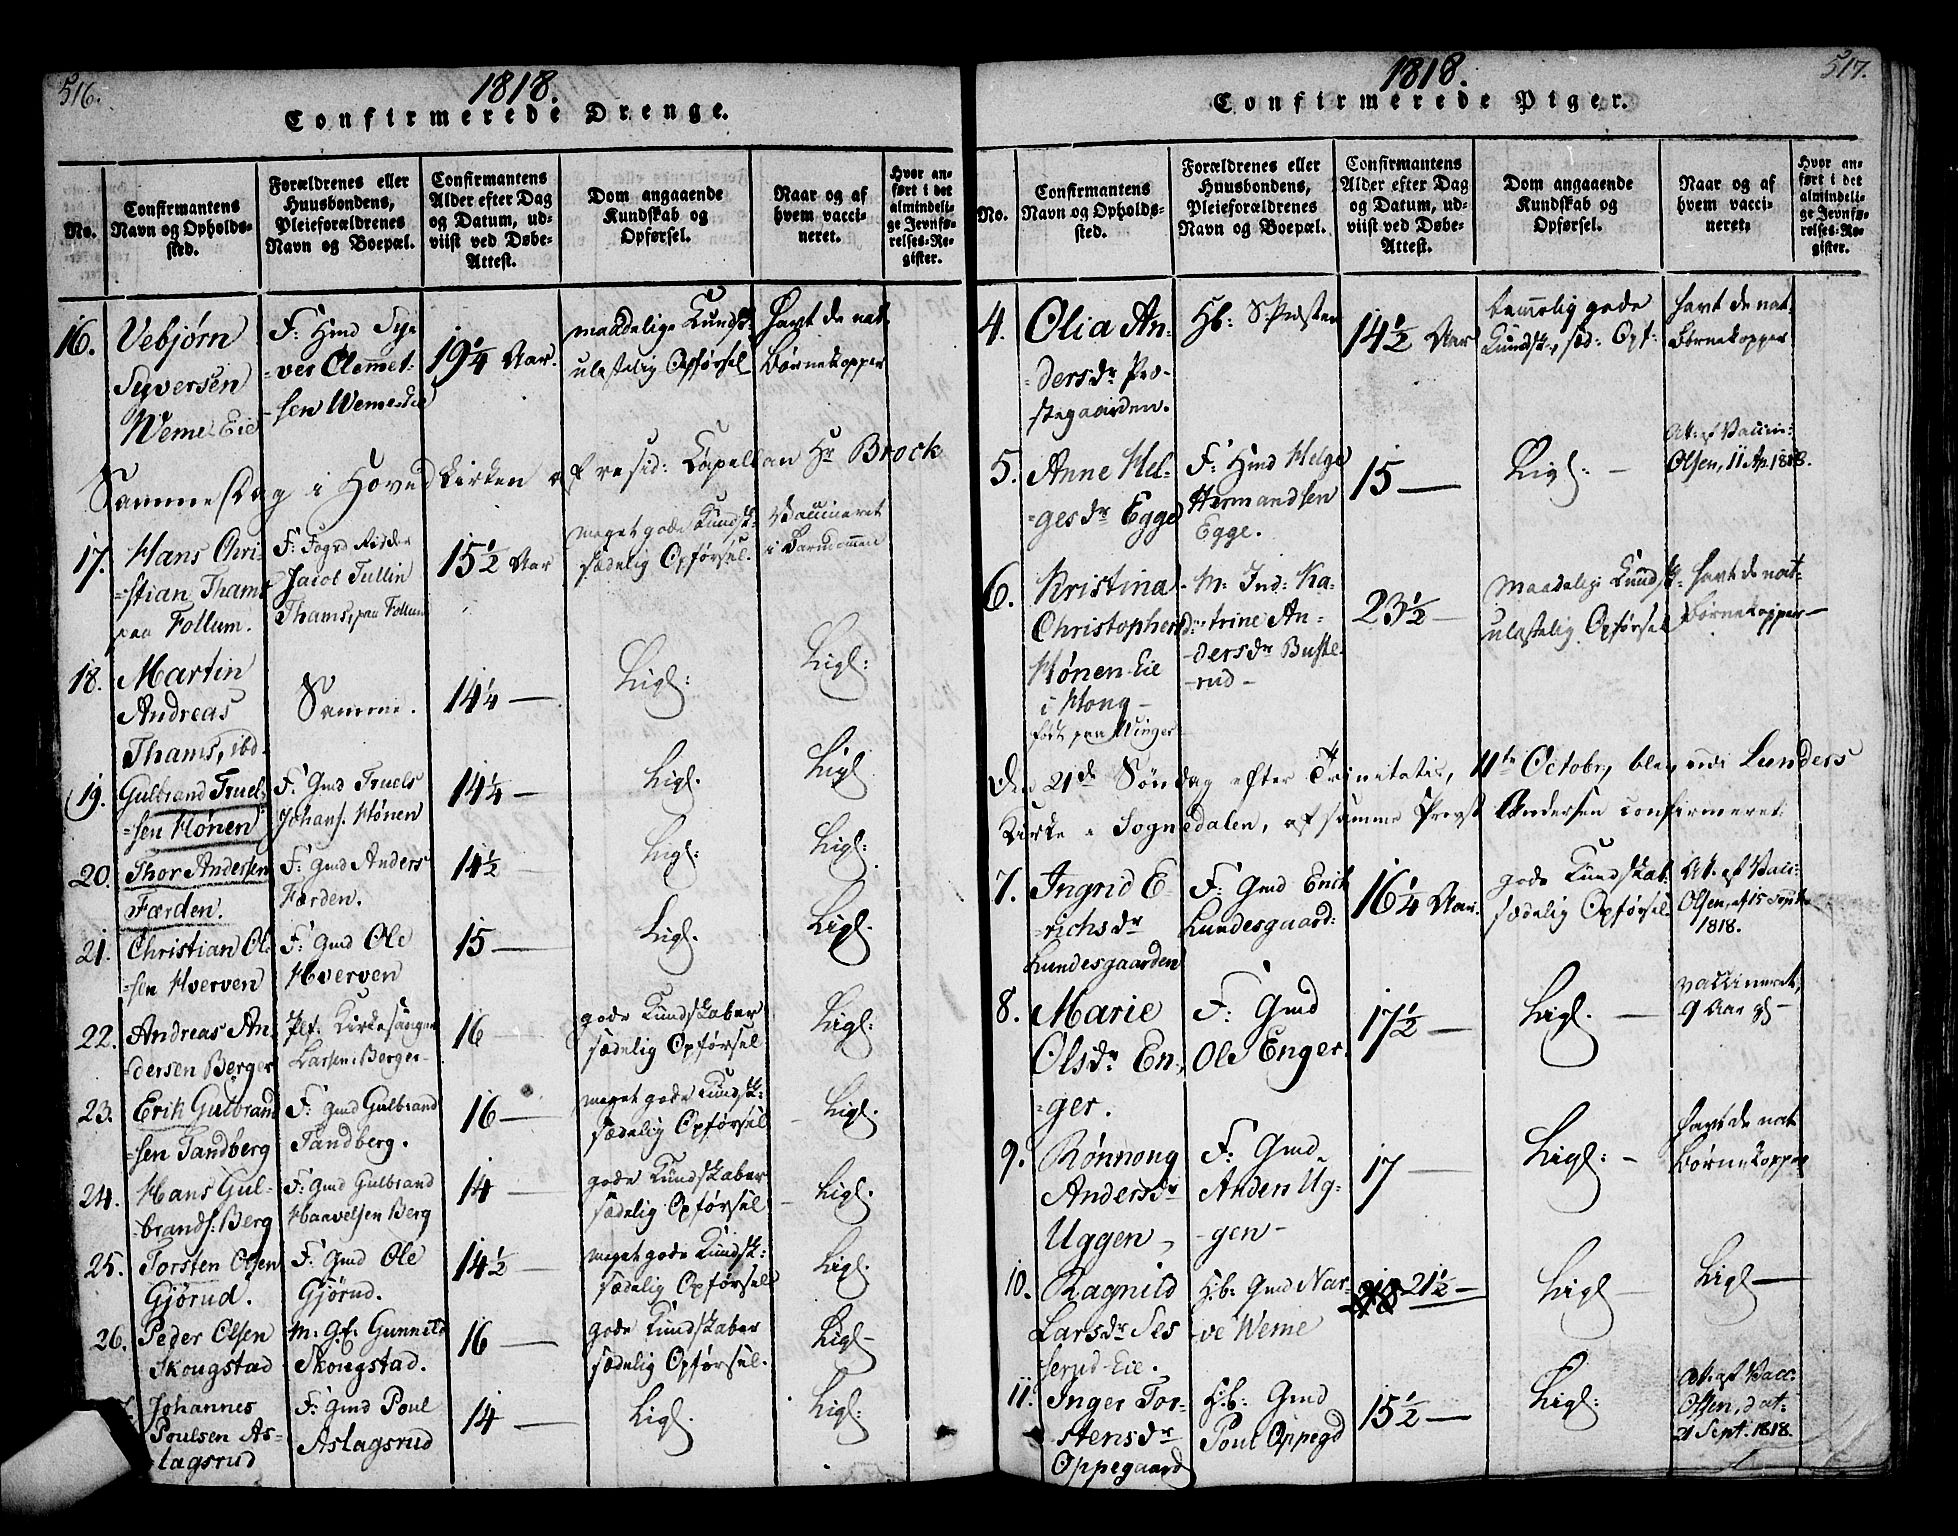 516.
1818.
Confirmerede Drenge.
No.
Confirmantens
Navn og Opholds-
sted.
Forældrenes eller
Huusbondens,
Pleieforældrenes
Navn og Boepæl.
Confirmantens
Alder efter Dag
og Datum, ud-
viist ved Døbe-
Attest.
Dom angaaende
Kundskab og
Opførsel.
Naar og af
hvem vacci-
neret.
Hvor an-
ført i det
almindeli-
ge Jevnfø-
relses-Re-
gister.
16.
Vebjørn
Syversen
Weme Eie
F: Hmd Sy-
ver Clemmet-
sen Weme-Eie
19 1/4 Aar.
maadelige Kundsk:
ulastelig Opførsel
Havt de nat.
Børnekopper
Samme Dag i Hovedkirken af resid: Capellan Hr Brock
17.
Hans Chri-
=stian Thams
paa Follum.
F: Foged Ridder
Jacob Tullin
Thams, paa Follum
15 1/2 Aar
meget gode Kundsk:
sædelig Opførsel.
Vaccineret
i Barndommen
18.
Martin
Andreas
Thams, ibd.
Samme.
14 1/4 —
Ligl:
Ligl:
19.
Gulbrand Truel-
=sen Hønen
F: Gmd Truels
Johans. Hønen
14 1/4 —
Ligl.
Ligl
20.
Thor Andersen
Færden.
F: Gmd Anders
Færden.
14 1/2 —
Ligl:
Ligl:
21.
Christian Ol-
=sen Hverven
F: Gmd Ole
Hverven
15 —
Ligl.
Ligl.
22.
Andreas An-
dersen Berger
Plf: Kirkesanger
Larsen Berger
16 —
gode Kundskaber
sædelig Opførsel
Ligl:
23.
Erik Gulbrand
=sen Tandberg
F: Gmd Gulbrand
Tandberg.
16 —
meget gode Kundsk:
sædelig Opførsel
Ligl.
24.
Hans Gul-
brands: Berg
F: Gmd Gulbrand
Haavelsen Berg
14 —
gode Kundskaber
sædelig Opførsel
Ligl.
25.
Torsten Olsen
Gjørud.
F: Gmd Ole
Gjørud.
14 1/2 —
meget gode Kundsk:
sædelig Opførsel
Ligl.
26.
Peder Olsen
Skougstad
M: G.E. Gunnild
Skougstad.
16 —
gode Kundskaber
sædelig Opførsel.
Ligl —
Johannes
Poulsen As-
=lagsrud
F: Gmd Poul
Aslagsrud
14 —
Ligl.
Ligl:
517.
1818.
Confirmerede Piger.
No.
Confirmantens
Navn og Opholds-
sted.
Forældrenes eller
Huusbondens,
Pleieforældrenes
Navn og Boepæl.
Confirmantens
Alder efter Dag
og Datum, ud-
viist ved Døbe-
Attest.
Dom angaaende
Kundskab og
Opførsel.
Naar og af
hvem vacci-
neret.
Hvor an-
ført i det
almindeli-
ge Jevnfø-
relses-Re-
gister.
4.
Olia An-
=dersdr Pro-
stegaarden.
Hb:
14 1/2 Aar
temmelig gode
Kundsk., sæd: Opf:
Havt de nat.
Børnekopper
5.
Anne Hel-
=gesdr Egge
F: Hmd Helge
Hermandsen
Egge.
15 —
Ligl: —
Att: af Vaccin:
Olsen, 11 Ap. 1818.
6.
Kristina
Christophersdr
Hønen-Eie
i Houg —
født paa Winger
M: Ind: Ka-
trine An-
-dersdr Buste-
-rud —
23 1/2 —
Maadelig Kundsk:
ulastelig Opførsel
Havt de nat-
Børnekopper —
Den 21de Søndag efter Trinitatis, 11te Octobr, blev udi Lunders
Kirke i Sognedalen, af samme Provst Andersen confirmeret:
7.
Ingrid E-
=richsdr
Lundesgaarden
F: Gmd Erich
Lundesgaard:
16 1/4 Aar.
gode Kundskab:
sædelig Opførsel
At. af Vacc:
Olsen, af 15 Septbr
1818.
8.
Marie
Olsdr En-
=ger.
F: Gmd
Ole Enger.
17 1/2 —
Ligl. —
Vaccineret,
9 Aar gl —
9.
Rønnoug
Andersdr
Uggen
F: Gmd
Anders Ug-
-gen —
17 —
Ligl: —
Havt de nat
Børnekopper
10.
Ragnild
Larsdr Ses
serud-Eie.
Hb: Gmd Nar-
-ve Weme
21 1/2 —
Ligl —
Ligl —
11.
Inger Tor-
-stensdr
Oppegaard
Hb: Gmd
Poul Oppegd
15 1/2 —
Ligl:
Att: af Vacc:
Olsen, dat:
21 Sept. 1818.